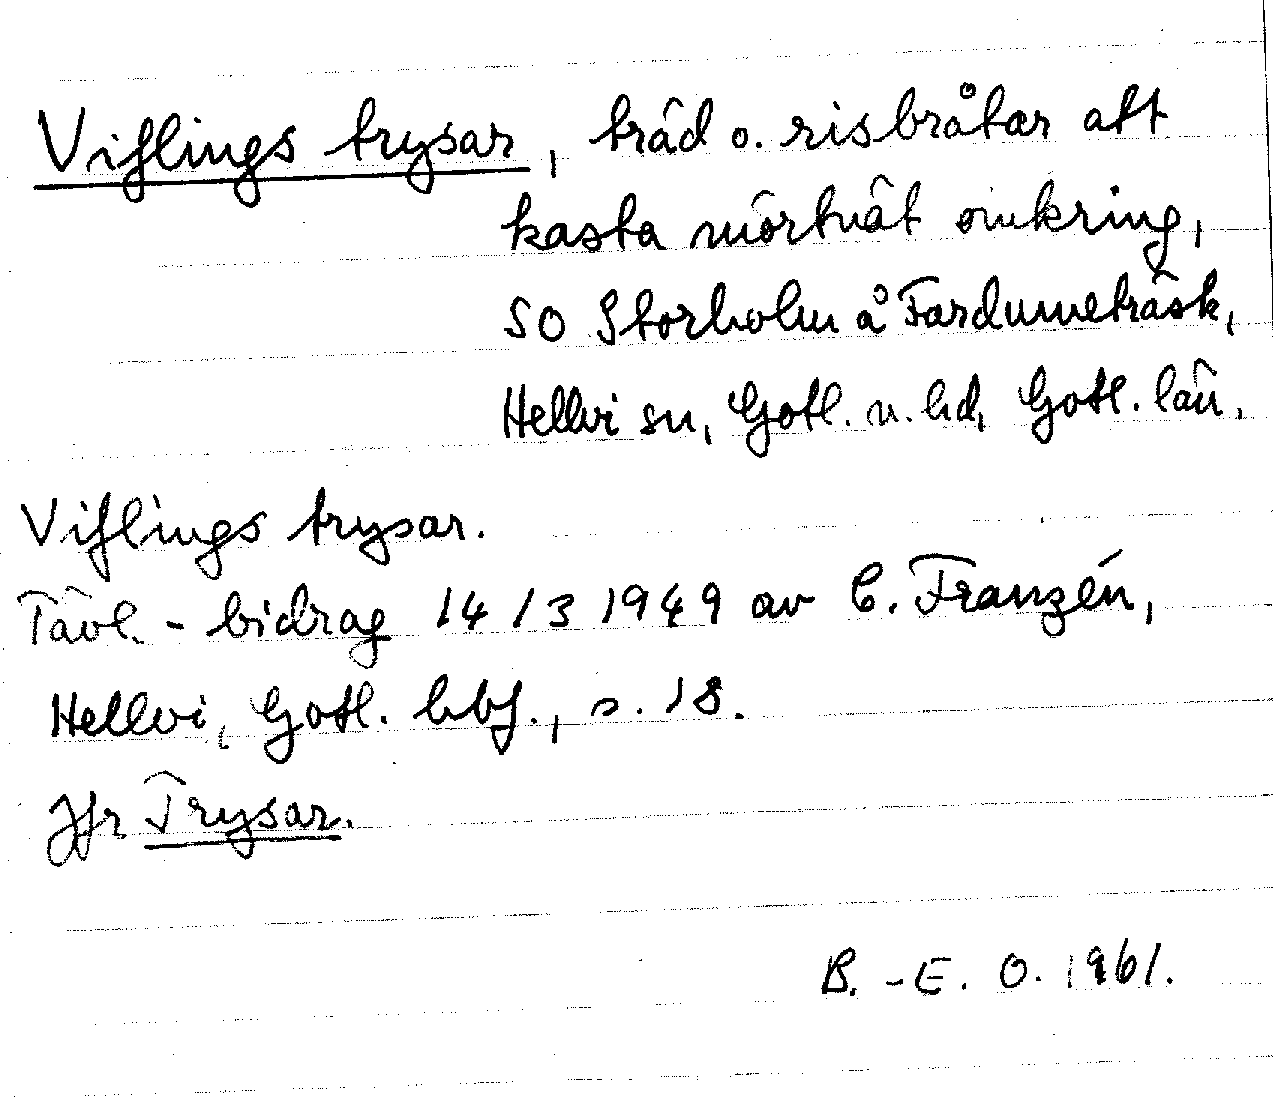 Viflings trysar, träd o. risbråtar att
kasta mörtnät omkring,
SO Storholm å Fardumeträsk,
Hellvi sn, Gotl. n. hd, Gotl. län.
Viflings trysar.
Tävl.-bidrag 14/3 1949 av C. Franzén,
Hellvi, Gotl. hbf., s. 18.
Jfr Trysar.
B.-E. O. 1961.